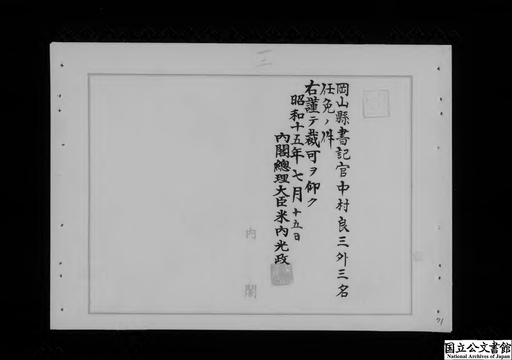 三
岡山縣書記官中村良三外三名
任免ノ件
右謹テ裁可ヲ仰ク
昭和十五年七月十五日
內閣總理大臣米內光政
內閣
71
国立公文書館
National Archives of Japan